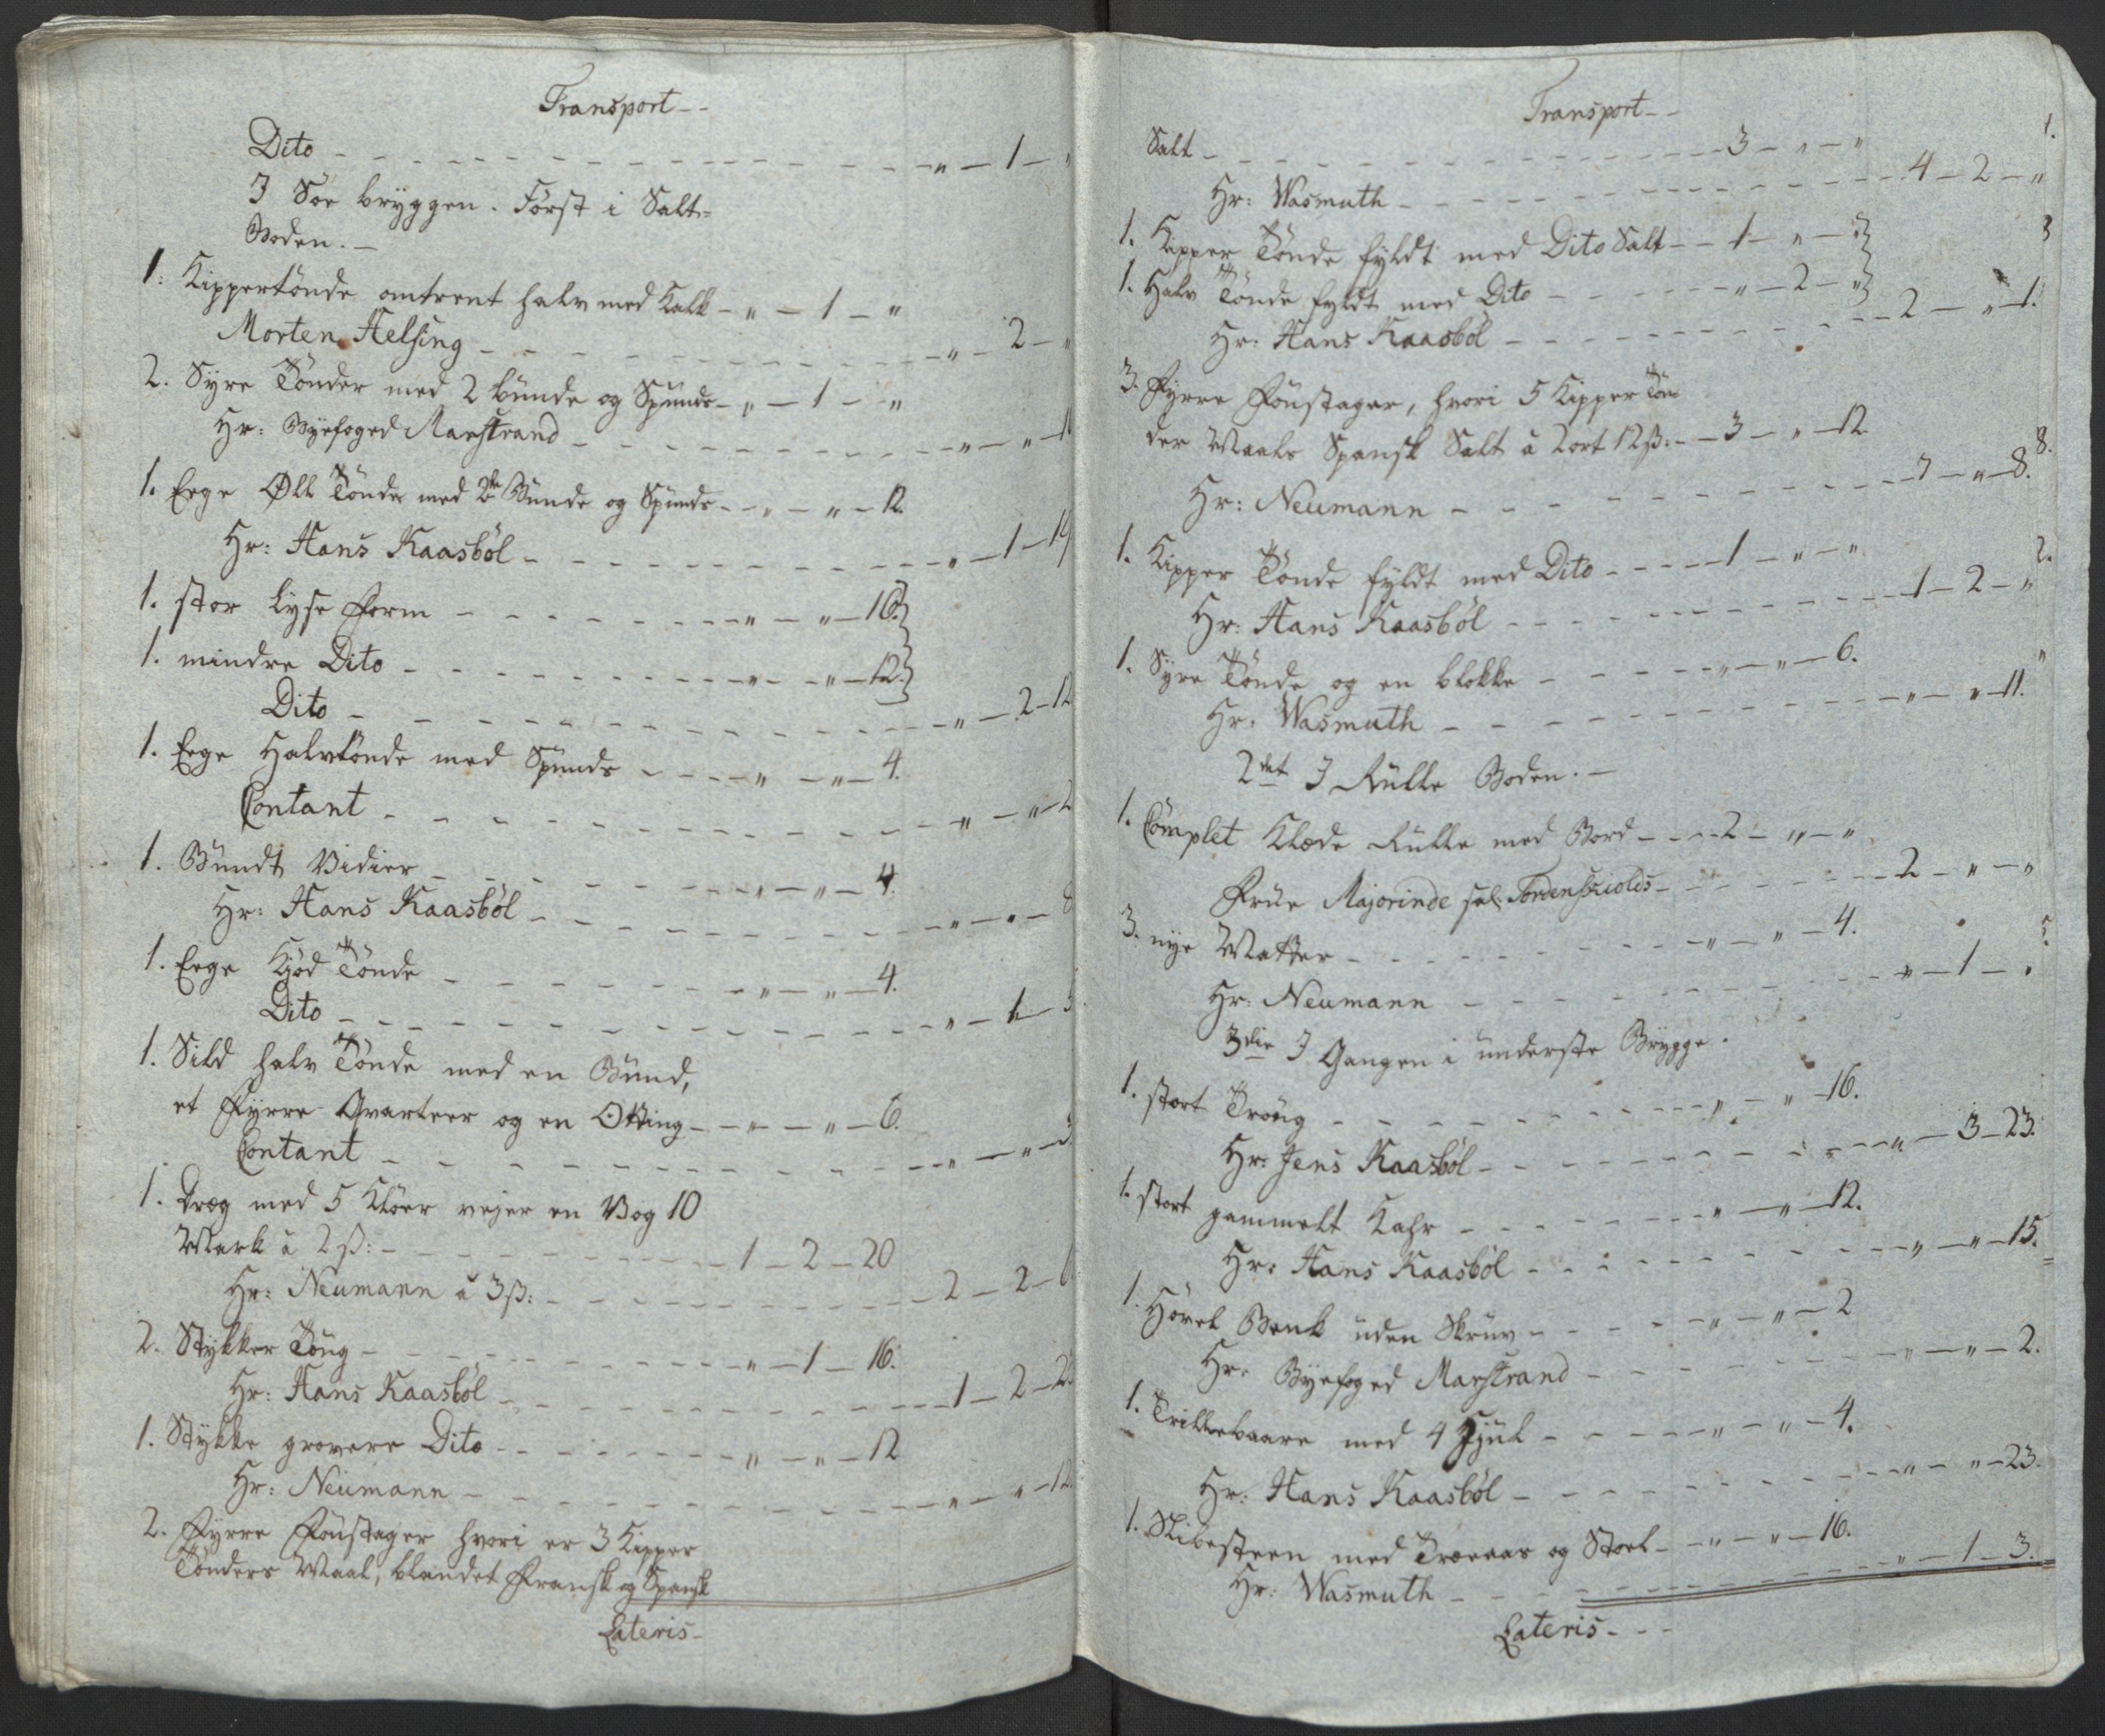 Transport--
Dito - - - „ - 1 - „
I Søe bryggen. Først i Salt=
Boden. -
1. Kippertönde omtrent halv med Kalk - „ - 1 - „
Morten Helsing - - - „ - 2 - „
2. Syre Tönder med 2 bunde og Spunds - „ - 1 - „
Hr: Byefoged Marstrand - - - „ - „ -
1. Eege Øll Tönde med 2de Bunde og Spunds - - „ - „ - 12.
Hr: Hans Kaasböl - - - „ - 1 - 19
1. stor Lyse Form - - - „ - „ - 16.}
1. mindre Dito - - - „ - „ - 12.}
Dito - - - „ - 2 - 12
1. Eege Halvtönde med Spunds - - - „ - „ - 4.
Contant - - - „ - „ - 2
1. Bundt Vidier - - - „ - „ - 4.
Hr: Hans Kaasböl - - - „ - „ - 8
1. Eege Kjød Tönde - - - „ - „ - 4.
Dito - - - „ - 1 - 5
1. Sild halv Tönde med en Bund,
et Fyrre Qvarteer og en Otting - - „ - „ - 6.
Contant - - - „ - „ - 3
1. Dræg med 5 Klöer vejer en Vog 10
Mark à 2 ß: - - - 1 - 2 - 20
Hr: Neumann à 3 ß: - - - 2 - 2 - 6
2. Stykker Toug - - - „ - 1 - 16.
Hr: Hans Kaasböl - - - 1 - 2 - 2
1. Stykke grovere Dito - - - „ - „ - 12
Hr: Neumann - - - „ - „ - 12.
2. Fyrre Foustager hvori er 3 Kipper
Tönders Maal, blandet Fransk og Spansk
Lateris-
Transport--
Salt - - - 3 - „ - „
Hr: Wasmuth - - - 4 - 2 - „
1. Kipper Tönde fyldt med Dito Salt - - 1 - „ - „}
1. Halv Tönde fyldt med Dito - - - „ - 2 - „}
Hr: Hans Kaasböl - - - 2 - „ - 1.
3. Fyrre Foustager, hvori 5 Kipper Tön-
der Maals Spansk Salt à 2 ort 12 ß: - - 3 - „ - 12
Hr: Neumann - - - 7 - „ - 8.
1. Kipper Tönde fyldt med Dito - - - 1 - „ - „
Hr: Hans Kaasböl - - - 1 - 2 - „
1. Syre Tönde og en blokke - - - „ - „ - 6.
Hr: Wasmuth - - - „ - „ - 11.
2det I Rulle Boden. -
1. Complet Klæde Rulle med Bord - - - 2 - „ - „
Frue Majorinde sal: Tordenskiolds - - - 2 - „ - „
3. nye Matter - - - „ - „ - 4.
Hr: Neumann - - - „ - 1 - „
3die I Gangen i underste Brygge.
1. stort Troug - - - „ - „ - 16.
Hr: Jens Kaasböl - - - „ - 3 - 23.
1. stort gammelt Kahr - - - „ - „ - 12.
Hr: Hans Kaasböl - - - „ - „ - 15.
1. Hövel Benk uden Skruv - - - „ - „ - 2
Hr: Byefoged Marstrand - - - „ - „ - 2.
1. Trillebaare med 4 Hjul - - - „ - „ - 4.
Hr: Hans Kaasböl - - - „ - „ - 23.
1. Slibesteen med Træeaas og Stoel - - „ - „ - 16.
Hr: Wasmuth - - - „ - 1 - 3.
Lateris- - -